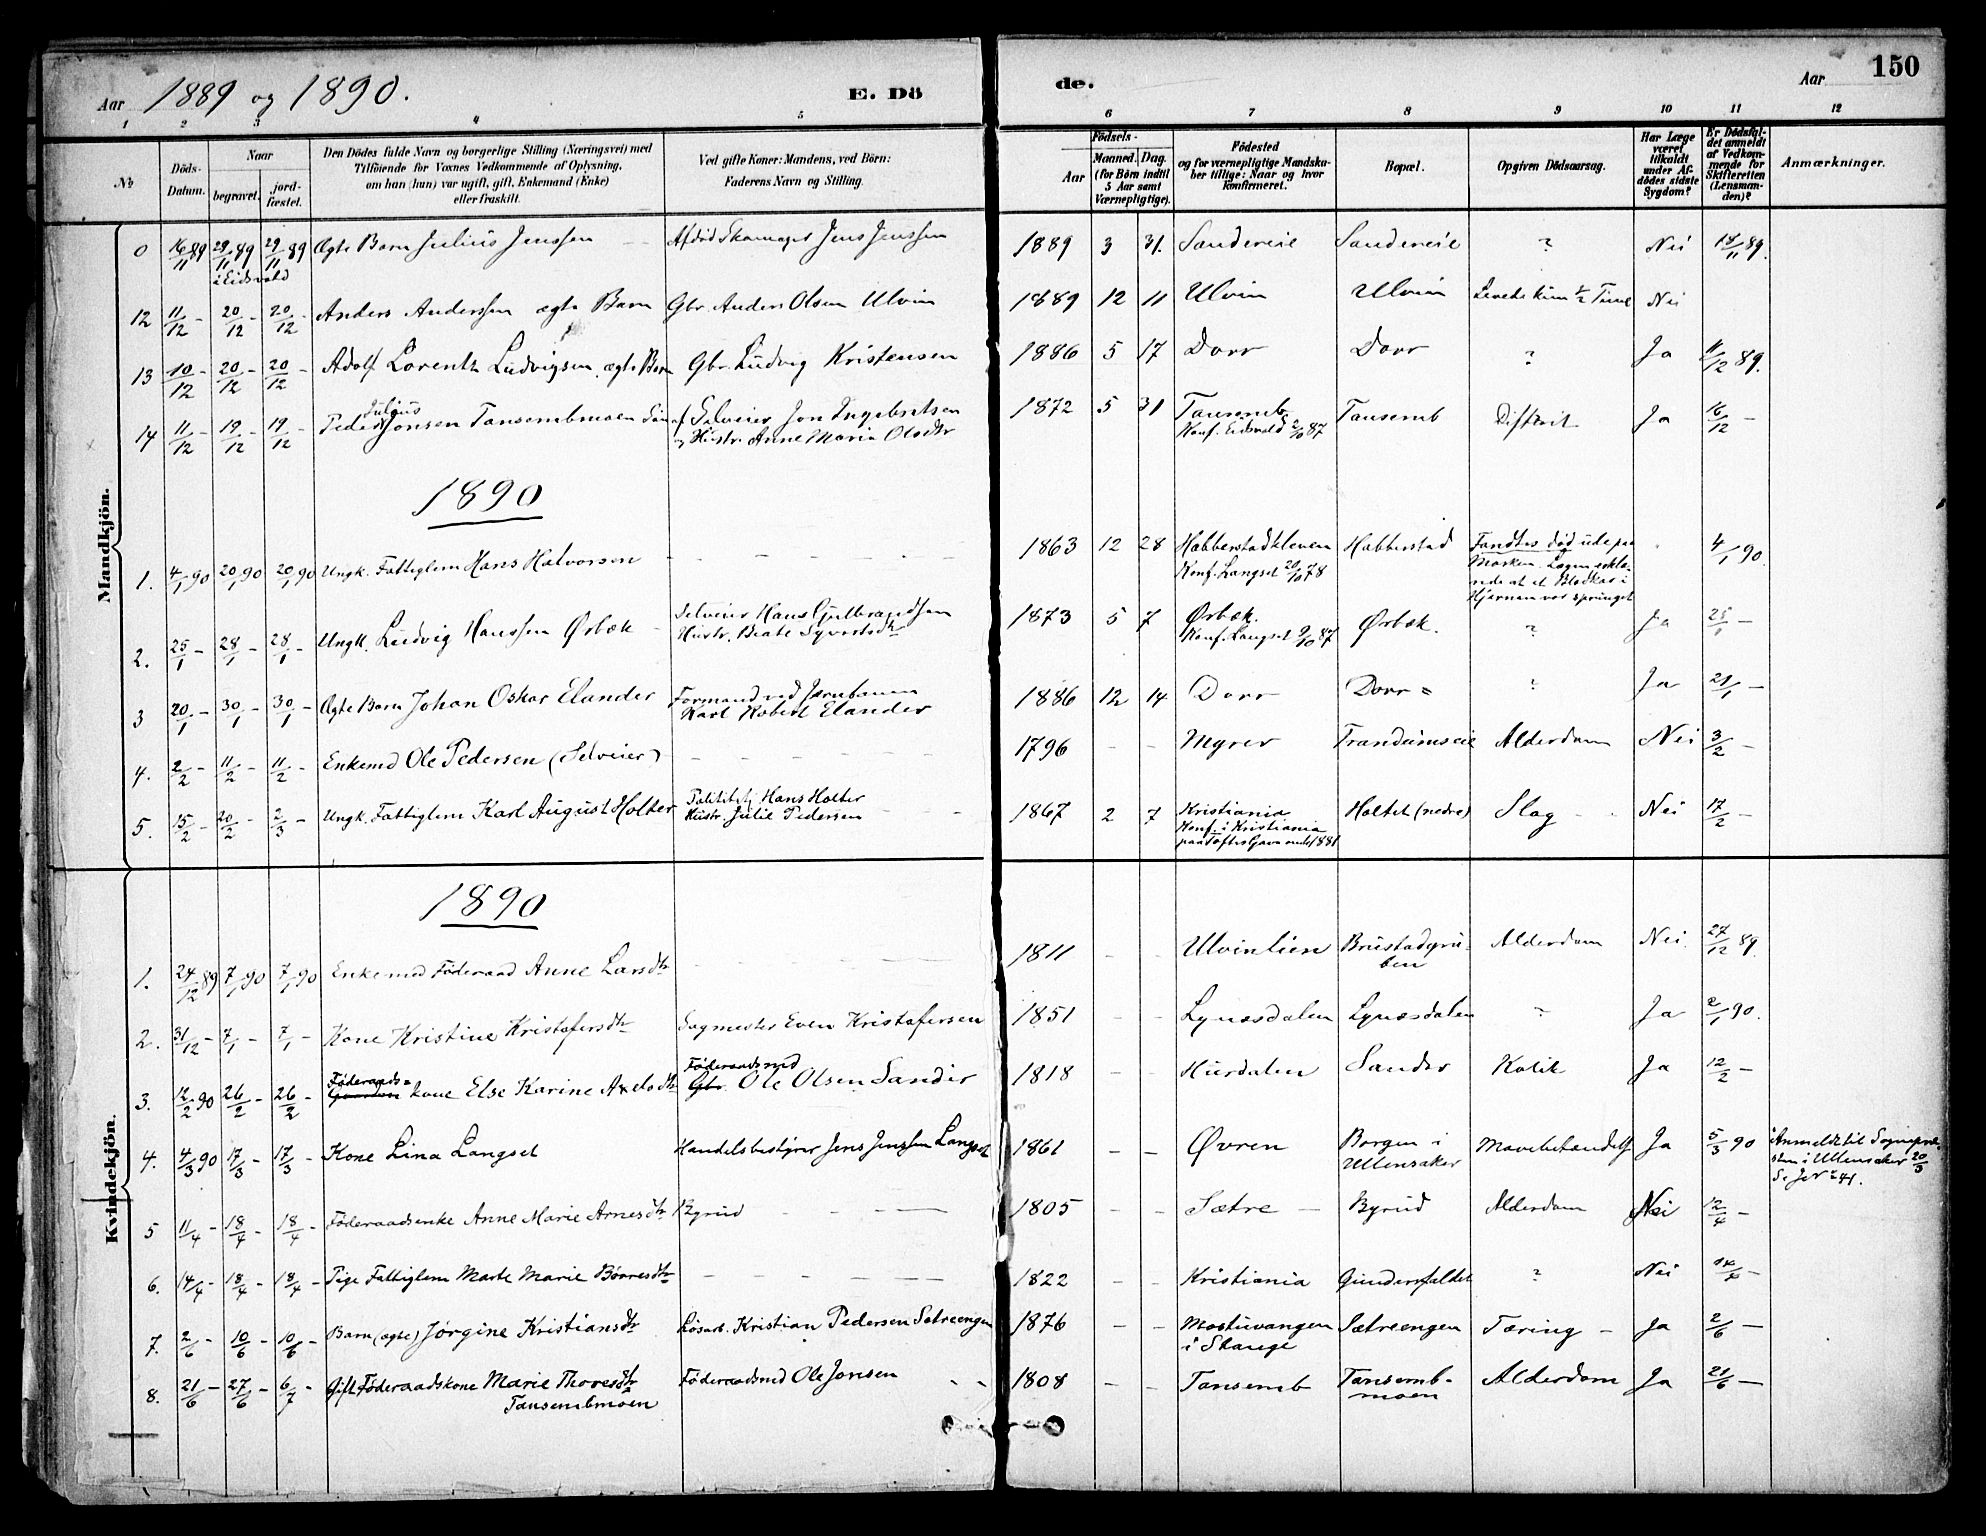 Aar 1889 og 1890. E. Dö de. Aar 150
1 2 3 4 5 6 7 8 9 10 11 12
№ Döds-Datum. Naar begravet. jord-fæstet. Den Dödes fulde Navn og borgerlige Stilling (Næringsvei) med Tilföiende for Voxnes Vedkommende af Oplysning, om han (hun) var ugift, gift, Enkemand (Enke) eller fraskilt. Ved gifte Koner: Mandens, ved Börn: Faderens Navn og Stilling. Födsels- Aar Maaned. Dag. (for Börn indtil 5 Aar samt Værnepligtige). Födested og for værnepligtige Mandskaber tillige: Naar og hvor konfirmeret. Bopæl. Opgiven Dödsaarsag. Har Læge været tilkaldt under Afdödes sidste Sygdom? Er Dödsfaldet anmeldt af Vedkommende for Skifteretten (Lensmanden)? Anmærkninger.
Mandkjön.
0 16/11 89 29/11 89 29/11 89 Ægte Barn Julius Jenssen Afdöd Skomager Jens Jenssen 1889 3 31. Sandereie Sandereie ? Nei 18/11 89.
i Eidsvold
12 11/12 - 20/12 - 20/12 - Anders Anderssen ægte Barn Gbr. Anders Olsen Ulvin 1889 12 11 Ulvin Ulvin Levede kun 1/2 Time Nei
13 10/12 - 20/12 - 20/12 - Adolf Lorentz Ludvigsen ægte Barn Gbr. Ludvig Kristensen 1886 5 17 Dorr Dorr ? Ja 11/12 89.
14 11/12 - 19/12 - 19/12 - Peder Julius Jonsen Tansembmoen Sön af Selveier Jon Ingebretsen 1872 5 31 Tansemb Tansemb Difterit Ja 16/12 -
og Hustr. Anne Maria Olsdtr Konf. Eidsvold 2/10 87
1890
1. 4/1 90 20/1 90 20/1 90 Ungk. Fattiglem Hans Halvorsen - - - 1863 12 28 Habberstadkleven Habberstad Fandtes död ude paa 4/1 90.
Konf. Langset 20/10 78 Marken. Lægen erklærede at et Blodkar i
Hjernen var sprunget
2. 25/1 - 28/1 - 28/1 - Ungk. Ludvig Hanssen Ørbæk - Selveier Hans Gulbrandsen 1873 5 7 Ørbæk. Ørbæk. ? Ja 25/1 -
Hustr. Beate Syvertsdtr Konf. Langset 9/10 87
3 20/1 - 30/1 - 30/1 - Ægte Barn Johan Oskar Elander Formand ved Jernbanen 1886 12 14 Dorr Dorr = ? Ja 21/1 -
Karl Robert Elander
4. 2/2 - 11/2 - 11/2 - Enkemd Ole Pedersen (Selveier) - - - 1796 - - Myrer Trandumseie Alderdom Nei 3/2 -
5. 15/2 - 20/2 - 2/3 - Ungk. Fattiglem Karl August Holter Politibetj. Hans Holter 1867 2 7 Kristiania Holtet (nedre) Slag - Nei 17/2 -
Hustr. Julie Pedersen Konf. i Kristiania
paa Toftes Gave 1881
Kvindekjön.
1890
1. 24/12 89 7/1 90 7/1 90 Enke med Föderaad Anne Larsdtr 1811 - - Ulvinlien Brustadgruben Alderdom Nei. 27/12 89.
2. 31/12 - 7/1 - 7/1 - Kone Kristine Kristofersdtr Sagmester Even Kristofersen 1851 - - Lynæsdalen Lynæsdalen ? Ja 2/1 90.
Föderaads= Föderaadsmd
3. 12/2 90 26/2 - 26/2 - kone Else Karine Axelsdtr Gbr. Ole Olsen Sander 1818 - - Hurdalen Sander Kolik Ja 12/2 -
4. 4/3 90 17/3 - 17/3 - Kone Lina Langset Handelsbestyrer Jens Jenssen Langset 1861 - - Øvren Borgen i Ullensaker Mavebetændelse Ja 5/3 90 Anmeldt til Sognepresten i Ullensaker 20/3
Se J № 41.
5 11/4 - 18/4 - 18/4 - Föderaadsenke Anne Marie Arnesdtr Byrud - - - 1805 - - Sætre - Byrud Alderdom Nei 12/4 -
6. 14/4 - 18/4 - 18/4 - Pige Fattiglem Marte Marie Børresdtr - - - 1822 - - Kristiania Gundersfaldet ? Nei 14/4 -
7. 2/6 - 10/6 - 10/6 - Barn (ægte) Jørgine Kristiansdtr Løsarb. Kristian Pedersen Sætreengen 1876 - - Mostuvangen Sætreengen Tæring - Ja 2/6 -
i Stange
8. 21/6 - 27/6 - 6/7 - Gift Föderaadskone Marie Thoresdtr Föderaadsmd Ole Jonsen 1808 - - Tansemb Tansembmoen Alderdom Ja 21/6 -
Tansembmoen